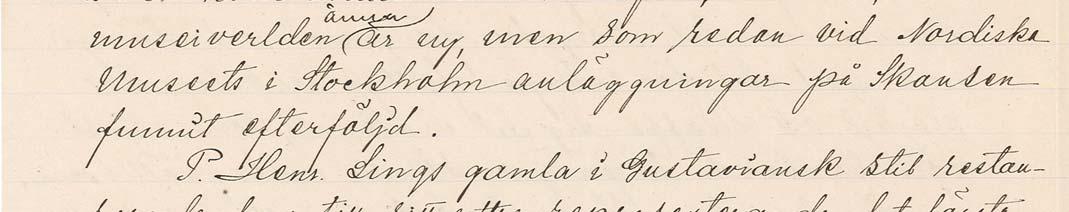 ännu
museiverlden är ny, men som redan vid Nordiska
Museets i Stockholm anläggningar på Skansen
funnit efterföljd.
P. Henr. Lings gamla i Gustaviansk stil restau-